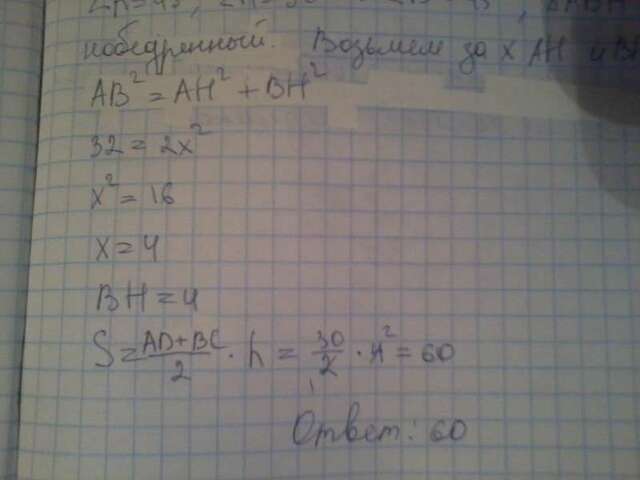 нобедренный. Возьмем за x AH и BH
AB² = AH² + BH²
32 = 2x²
x² = 16
x = 4
BH = 4
S = AD+BC/2 · h = 30/2 · 4² = 60
Ответ: 60